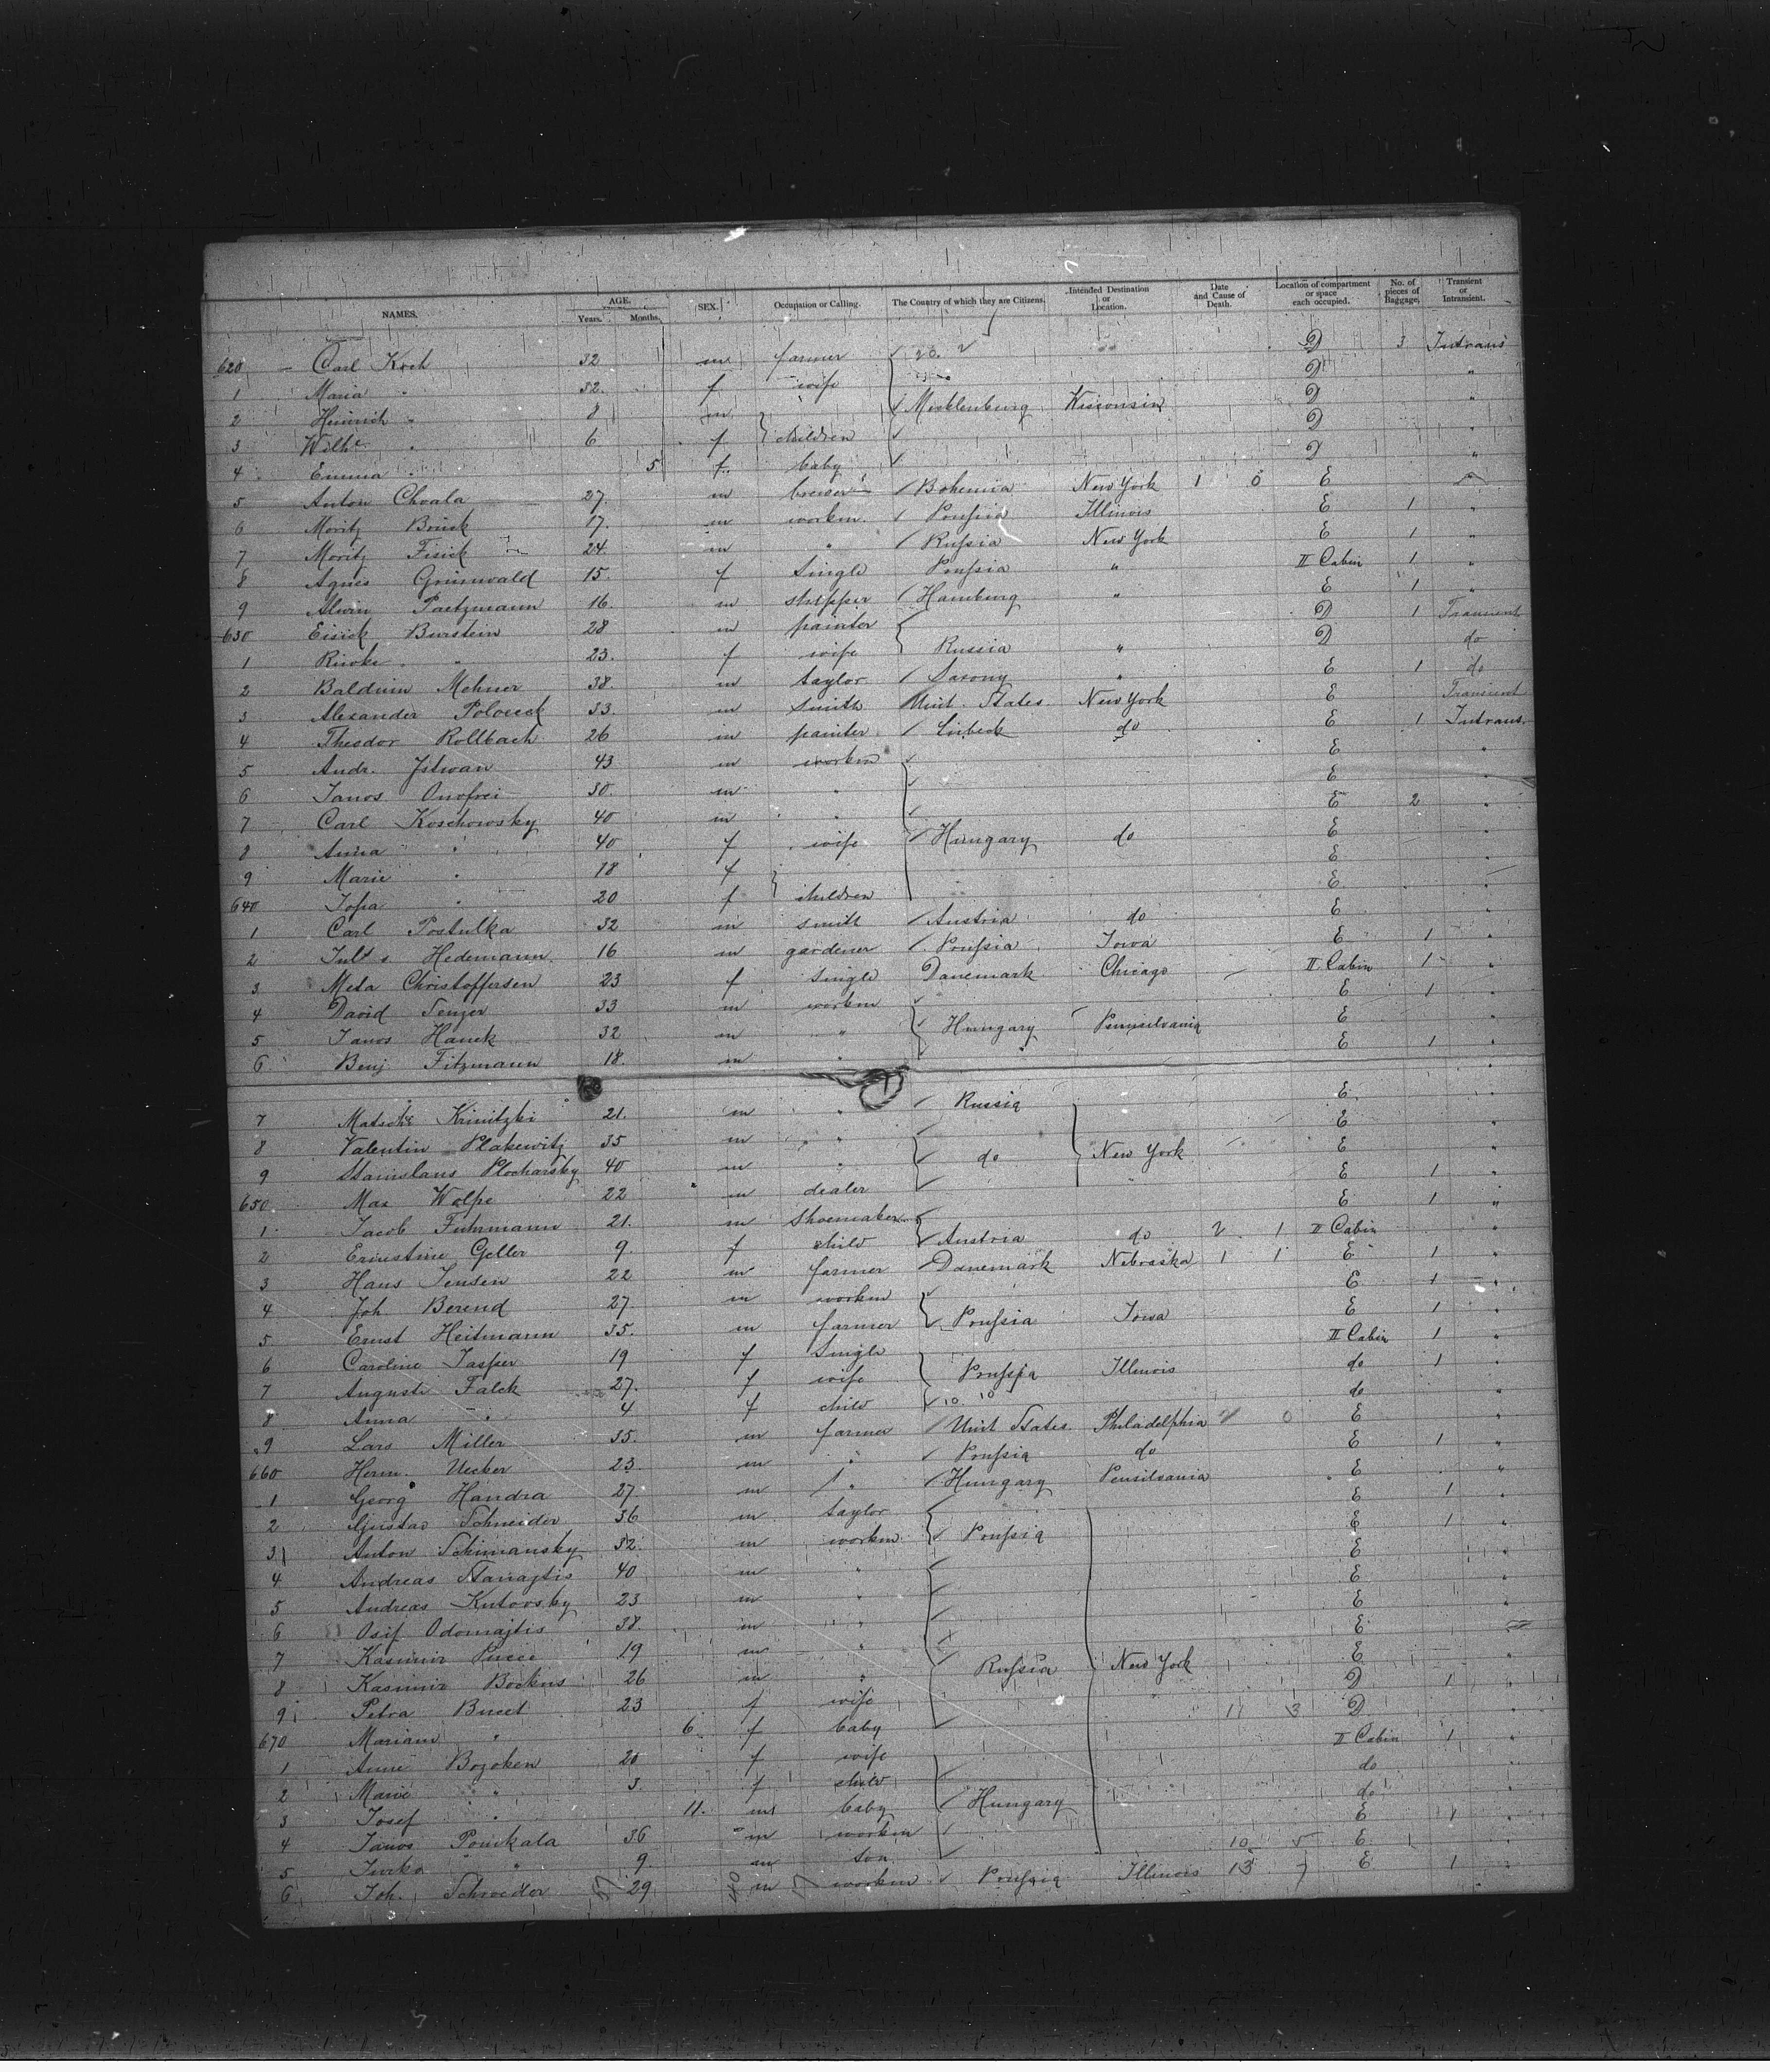 NAMES. AGE. Years. Months. SEX. Occupation or Calling. The Country of which they are Citizens. Intended Destination or Location. Date and Cause of Death. Location of compartment or space each occupied. No. of pieces of Baggage. Transient or Intransient.
620 Carl Koch 32 m farmer 20. 2 D 3 Intrans
1 Maria " 32 f wife D "
2 Heinrich " 8 m Mecklenburg Wisconsin D "
3 Wilhe " 6 f children D "
4 Emma " 5 f baby D "
5 Anton Chvala 27 m brewer Bohemia New York 1 0 E "
6 Moritz Brück 17 m workm. Prussia Illinois E 1 "
7 Moritz Fisick 24 m " Russia New York E 1 "
8 Agnes Grünwald 15 f Single Prussia " II Cabin 1 "
9 Alwin Paetzmann 16 m Hamburg " E 1 "
630 Eisick Burstein 28 m painter D 1 Transient
1 Riwke " 23 f wife Russia " D do
2 Balduin Mehner 38 m taylor Saxony " E 1 do
3 Alexander 33 m smith Unit. States New York E Transient
4 Theodor Rollbach 26 m painter Lübeck do E 1 Intrans.
5 Andr. Istwan 43 m workm E "
6 Janos Onofrei 30 m " E "
7 Carl Koschowsky 40 m " E 2 "
8 Anna " 40 f wife Hungary do E
9 Marie " 18 f E "
640 " 20 f children E "
1 Carl Postulka 32 m smith Austria do E "
2 Hedemann 16 m gardener Prussia Iowa E 1 "
3 Meta Christoffersen 23 f Single Danemark Chicago II Cabin 1 "
4 David Senger 33 m workm E 1 "
5 Janos Hanek 32 m " Hungary Pennsilvania E "
6 Benj. Fitzmann 18 m " E 1 "
7 Krinitzki 21 m " Russia E "
8 Valentin Plakewitz 35 m " E "
9 Stanislaus Plocharsky 40 m " do New York E "
650 Max Wolpe 22 m dealer E 1 "
1 Jacob Fuhrmann 21 m Shoemaker E 1 "
2 Ernestine Geller 9 f child Austria do 2 1 II Cabin "
3 Hans Jensen 22 m farmer Danemark Nebraska 1 1 E 1 "
4 Joh Berend 27 m workm E 1 "
5 Ernst Heitmann 35 m farmer Prussia Iowa E 1 "
6 Caroline Jasper 19 f Single II Cabin 1 "
7 Auguste Falck 27 f wife Prussia Illinois do 1 "
8 Anna " 4 f child 10 10 do "
9 Lars Miller 35 m farmer Unit States Philadelphia 0 E "
660 Herm. Uecker 23 m " Prussia do E 1 "
1 Georg Handra 27 m " Hungary Pensilvania E "
2 Gustav Schneider 36 m taylor E 1 "
3 Anton Schimansky 32 m workm Prussia E 1 "
4 Andreas Stanajtis 40 m " E "
5 Andreas Kutovsky 23 m " E "
6 Osif Odomajtis 38 m " E "
7 Kasimir 19 m " E
8 Kasimir Bockus 26 m " Russia New York E "
9 Petra 23 f wife D 1 "
670 Mariam " 6 f baby 11 3 D "
1 Anne Bozoken 20 f wife II Cabin 1 "
2 Marie " 3 f child do "
3 Josef " 11 m baby Hungary do "
4 Janos 36 m workm E 1 "
5 " 9 m son 10 5 E "
6 Joh. Schroeder 29 m workm Prussia Illinois 13 7 E 1 "